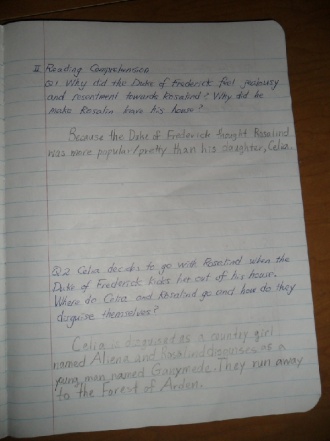 II Reading Comprehension
Q1 Why did the Duke of Frederick feel jealousy
and resentment towards Rosalind? Why did he
make Rosalin leave his house?
Because the Duke of Frederick thought Rosalind
was more popular/pretty than his daughter, Celia.
Q.2 Celia decides to go with Rosalind when the
Duke of Frederick kicks her out of his house.
Where do Celia and Rosalind go and how do they
disguise themselves?
Celia is disguised as a country girl
named Aliena and Rosalind disguises as a
young man named Ganymede. They run away
to the Forest of Arden.